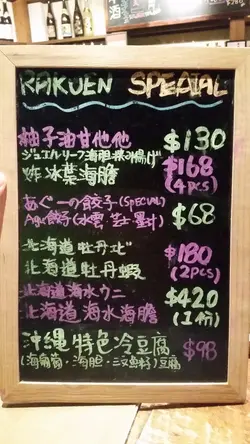 RAKUEN SPECIAL
柚子油甘他他 $130
ジュエルリーフ海胆挟み揚げ
炸冰葉海膽 $168
(4pcs)
あぐーの餃子(SPECIAL)
Agu餃子(水雲 芝士 墨汁) $68
北海道牡丹エビ
北海道牡丹蝦 $180
(2pcs)
北海道海水ウニ $420
北海道海水海膽 (1板)
沖縄特色冷豆腐 $98
(海葡萄、海胆、三文魚籽)豆腐